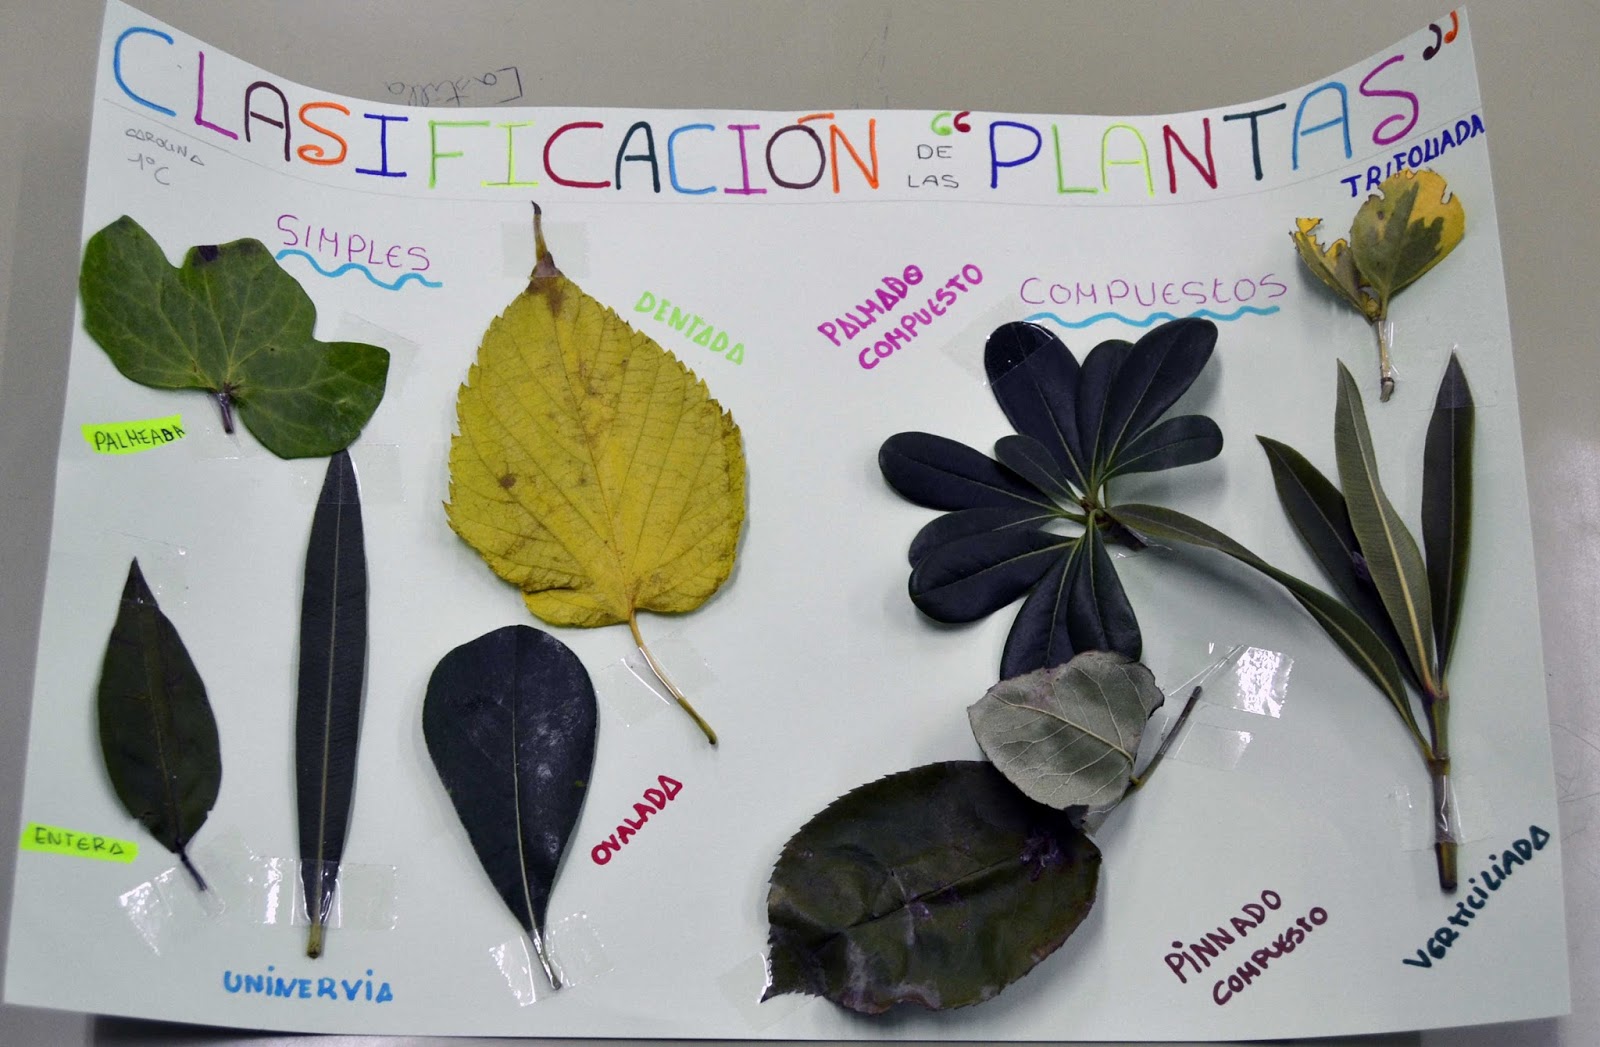 CLASIFICACIÓN DE LAS “PLANTAS”
CAROLINA
1º C
Castilla
SIMPLES
PALMEADA
DENTADA
ENTERA
UNINERVIA
OVALADA
COMPUEStOS
TRIFOLIADA
PALMADO
COMPUESTO
PINNADO
COMPUESTO
VERTICILIADA